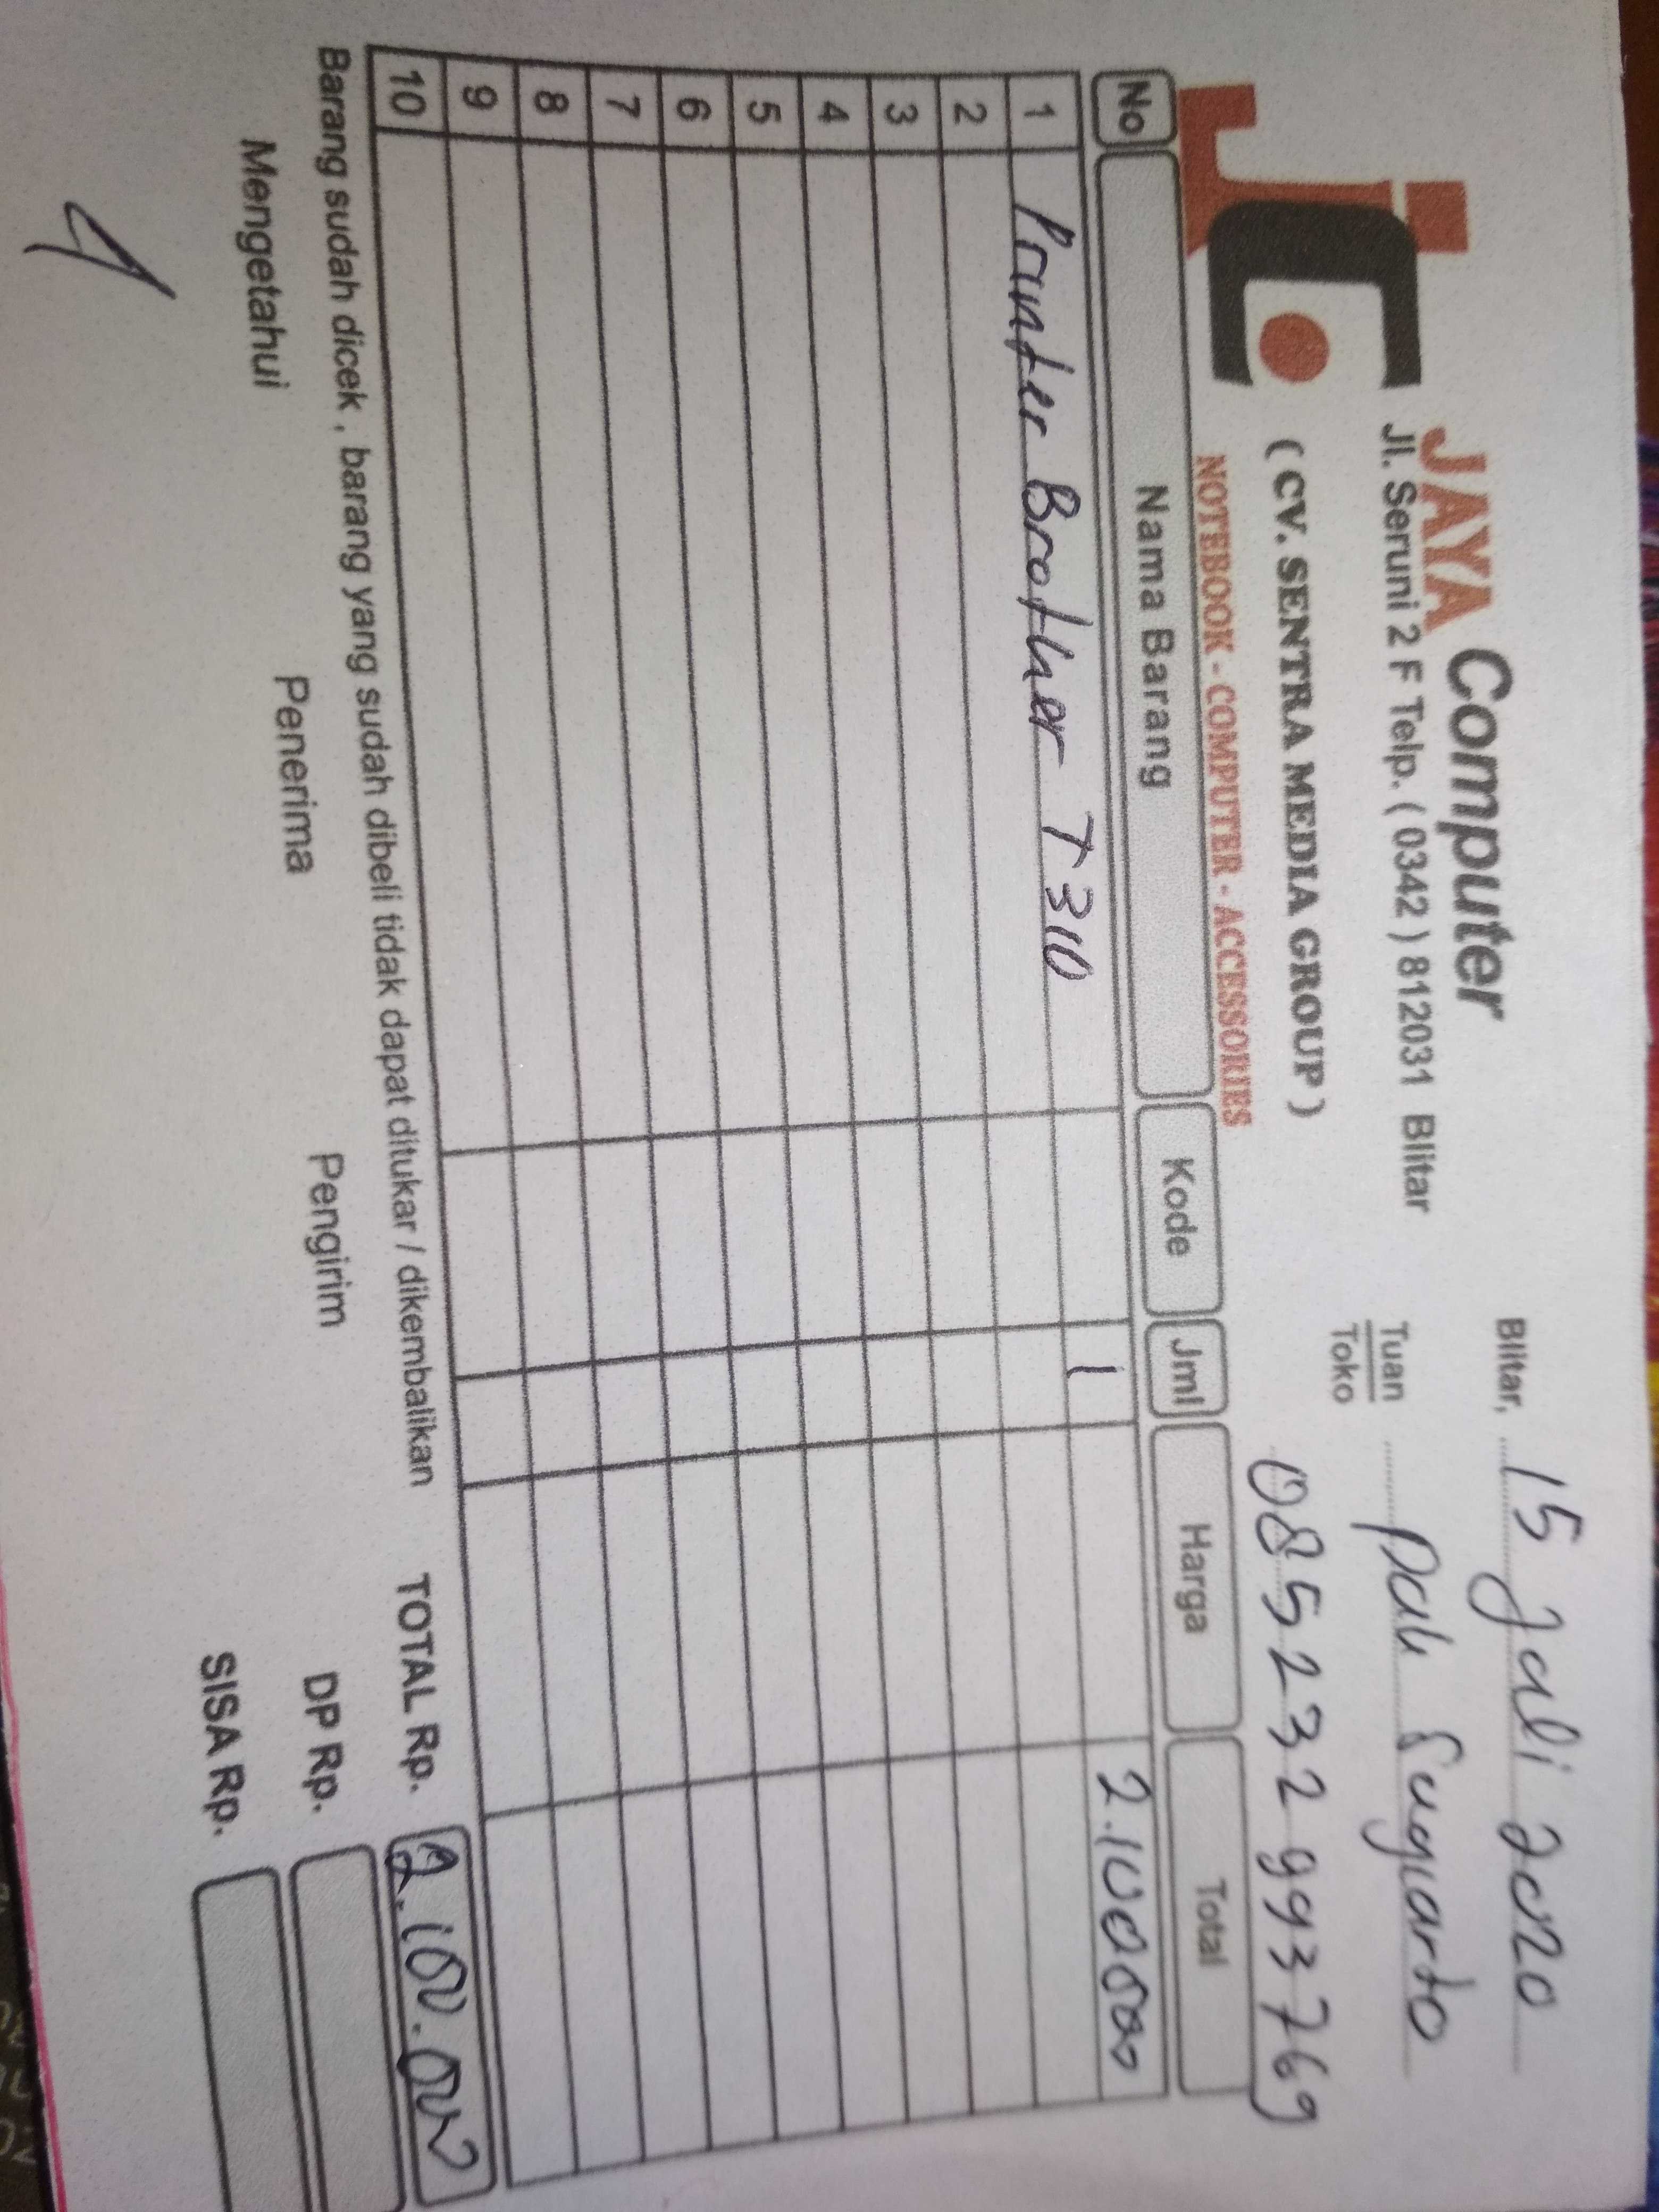 JC
JAYA Computer
Jl. Seruni 2 F Telp. ( 0342 ) 812031 Blitar
( CV. SENTRA MEDIA GROUP )
NOTEBOOK - COMPUTER - ACCESSORIES
Blitar, 15 Juli 2020
Tuan
Toko
Pak Sugiarto
085232993769
No Nama Barang Kode Jml Harga Total
1 Printer Brother T310 1 2.100.000
2
3
4
5
6
7
8
9
10
Barang sudah dicek , barang yang sudah dibeli tidak dapat ditukar / dikembalikan
TOTAL Rp. 2.100.000
Mengetahui Penerima Pengirim
DP Rp.
SISA Rp.